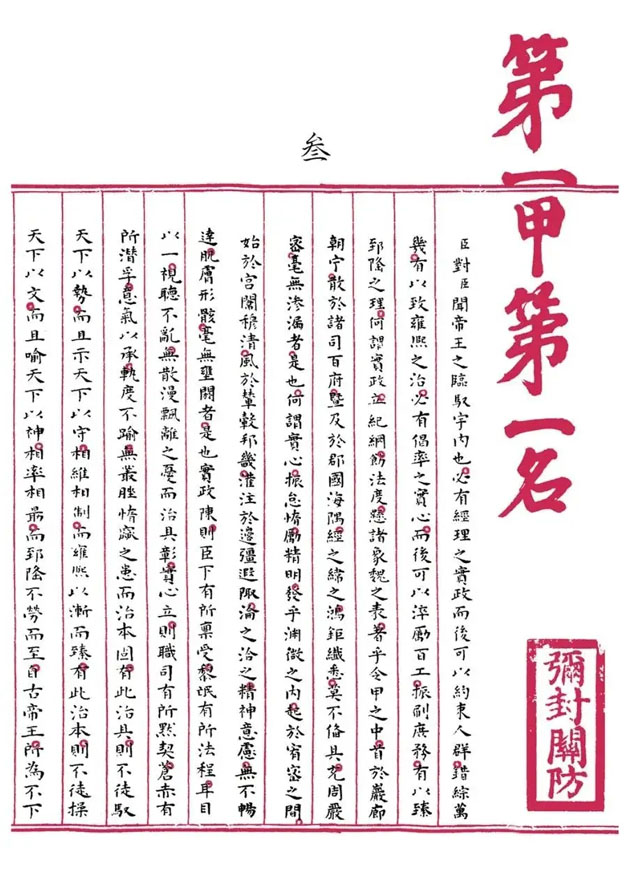 第一甲第一名
彌封關防
叁
臣對臣聞帝王之臨馭宇內也必有經理之實政而後可以約束人群錯綜萬
幾有以致雍熙之治必有倡率之實心而後可以淬勵百工振刷庶務有以臻
郅隆之理何謂實政立紀綱飭法度懸諸象魏之表著乎令甲之中首於巖廊
朝宁散於諸司百府暨及於郡國海隅經之緯之鴻鉅纖悉莫不備具充周嚴
密毫無滲漏者是也何謂實心振怠惰勵精明發乎淵微之內起於宥密之間
始於宮闈穆清風於輦轂邦畿灌注於邊疆遐陬淪之洽之精神意慮無不暢
達肌膚形骸毫無壅閼者是也實政陳則臣下有所稟受黎氓有所法程耳目
以一視聽不亂無散漫飄離之憂而治具彰實心立則職司有所默契蒼赤有
所潛孚意氣以承軌度不踰無叢脞惰窳之患而治本固有此治具則不徒馭
天下以勢而且示天下以守相維相制而雍熙以漸而臻有此治本則不徒操
天下以文而且喻天下以神相率相朂而郅隆不勞而至自古帝王所為不下